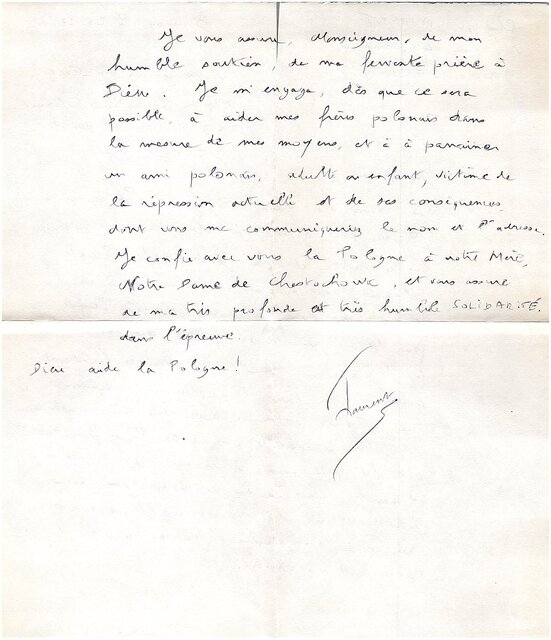 Je vous assure, Monseigneur, de mon
humble soutien, de ma fervente prière à
Dieu. Je m'engage, dès que ce sera
possible, à aider mes frères polonais dans
la mesure de mes moyens, et à à parrainer
un ami polonais, adulte ou enfant, victime de
la répression actuelle et de ses conséquences
dont vous me communiqueriez le nom et l'adresse.
Je confie avec vous la Pologne à notre Mère,
Notre Dame de Chestochowa, et vous assure
de ma très profonde et très humble SOLIDARITÉ.
dans l'épreuve.
Dieu aide la Pologne!
Laurent